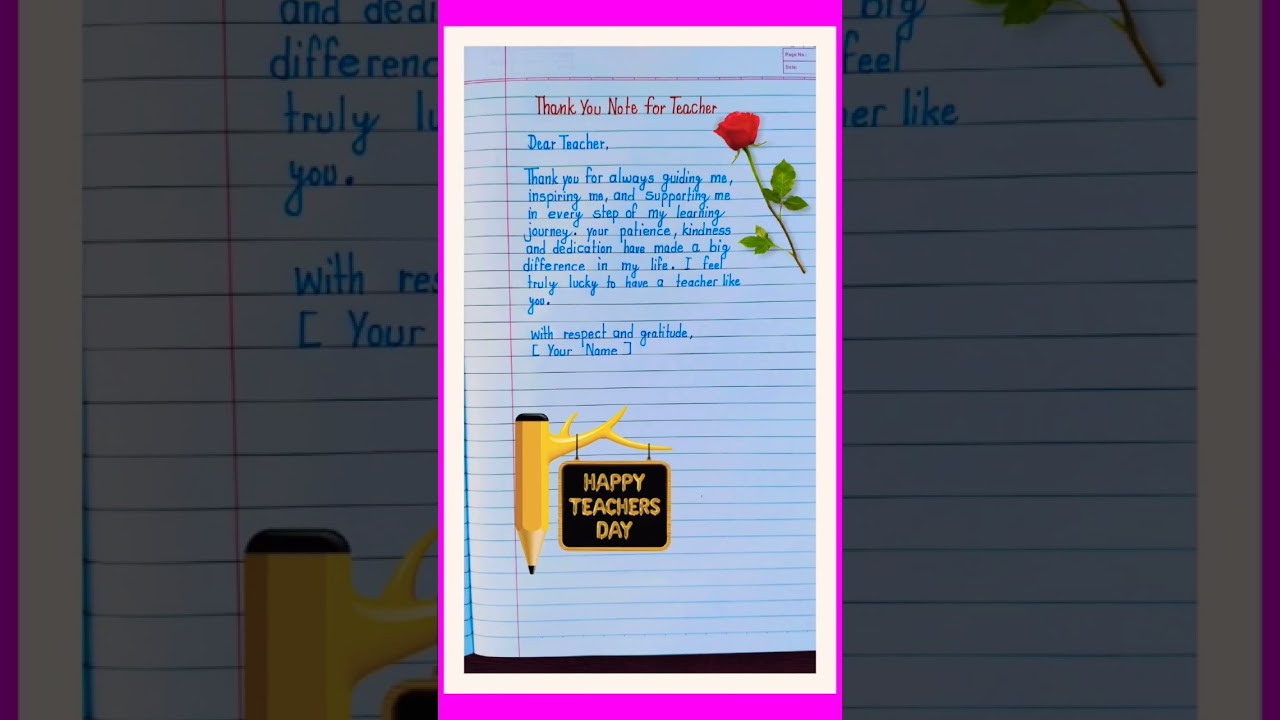 and dedi
differenc
truly lu
you.
with res
[ Your
Page No.:
Date:
Thank You Note for Teacher
Dear Teacher,
Thank you for always guiding me,
inspiring me, and supporting me
in every step of my learning
journey. your patience, kindness
and dedication have made a big
difference in my life. I feel
truly lucky to have a teacher like
you.
with respect and gratitude,
[ Your Name ]
HAPPY
TEACHERS
DAY
big
feel
her like